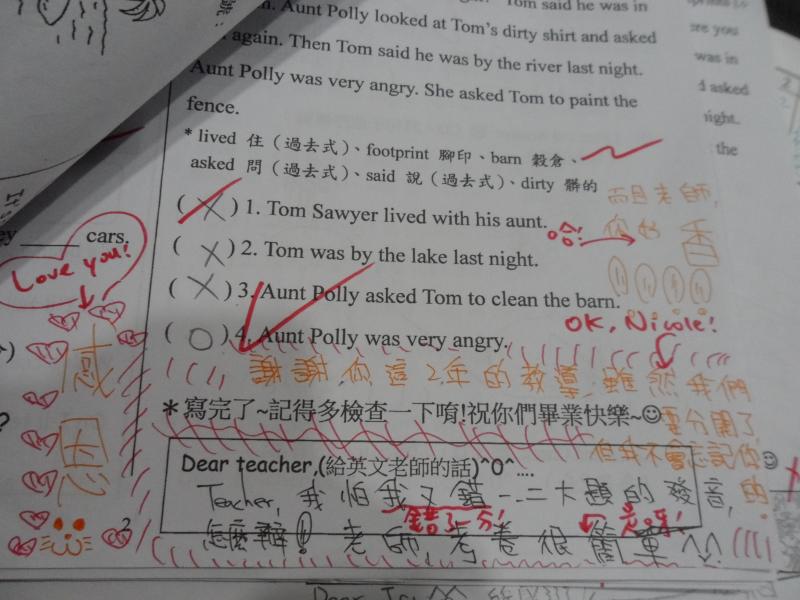 Tom said he was in
. Aunt Polly looked at Tom's dirty shirt and asked
again. Then Tom said he was by the river last night.
Aunt Polly was very angry. She asked Tom to paint the
fence.
see you
was in
asked
night.
the
* lived 住（過去式）、footprint 腳印、barn 穀倉、
asked 問（過去式）、said 說（過去式）、dirty 髒的
(X) 1. Tom Sawyer lived with his aunt.
(X) 2. Tom was by the lake last night.
(X) 3. Aunt Polly asked Tom to clean the barn.
(O) 4. Aunt Polly was very angry.
而且老師,
你好香
哈!
OK, Nicole!
cars.
Love you!
感恩
謝謝你這2年的教導,雖然我們
要分開了
但我不會忘記你
的
*寫完了~記得多檢查一下唷!祝你們畢業快樂~☺
Dear teacher,(給英文老師的話)^0^....
Teacher, 我怕我又錯一、二大題的發音,
錯了一分!
怎麼辦!! 老師,考卷很簡單^^
是呀!
2